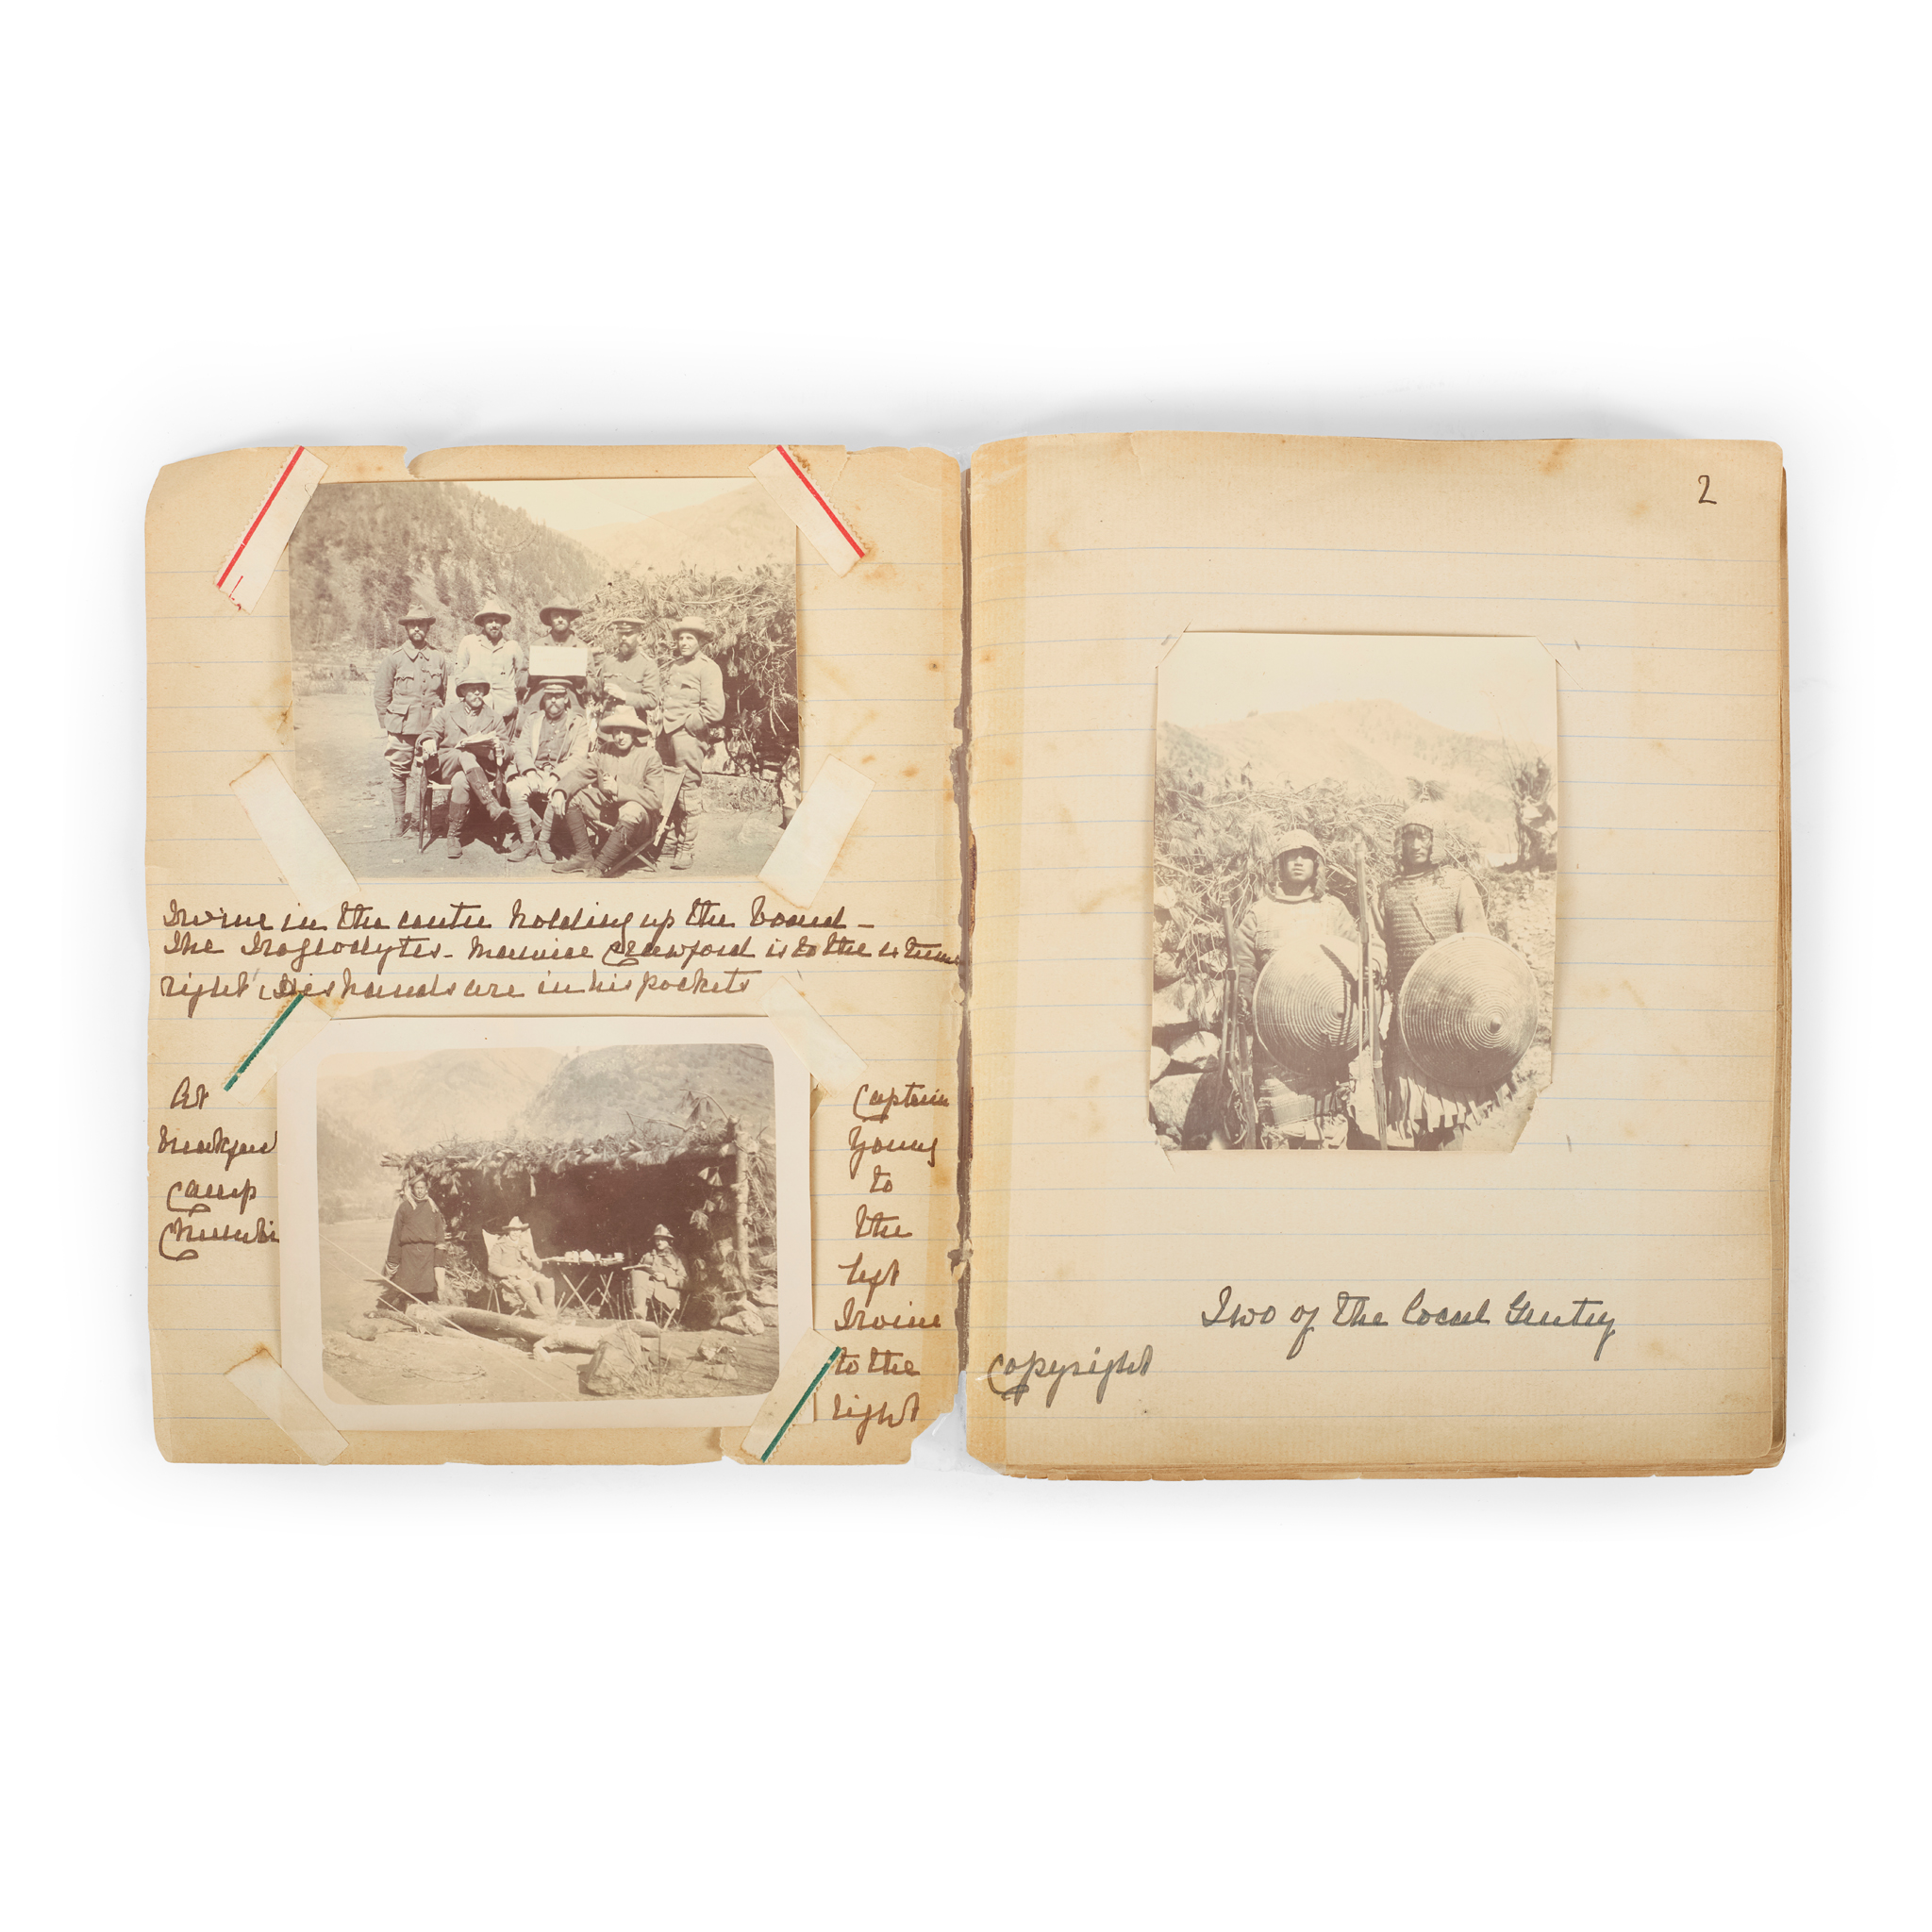 Irvine in the centre holding up the board -
The Troglodytes - Maurice Crawford is to the extreme
right, His hands are in his pockets
At
breakfast
Camp
Chumbi
Captain
Young
to
the
left
Irvine
to the
right
2
Two of the Local Gentry
Copyright